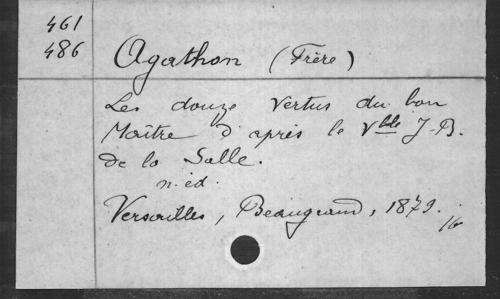 461
486
Agathon (Frère)
Les douze vertus du bon
Maître d'après le Vble J-B.
de la Salle.
n. éd.
Versailles, Beaugrand, 1879.
16